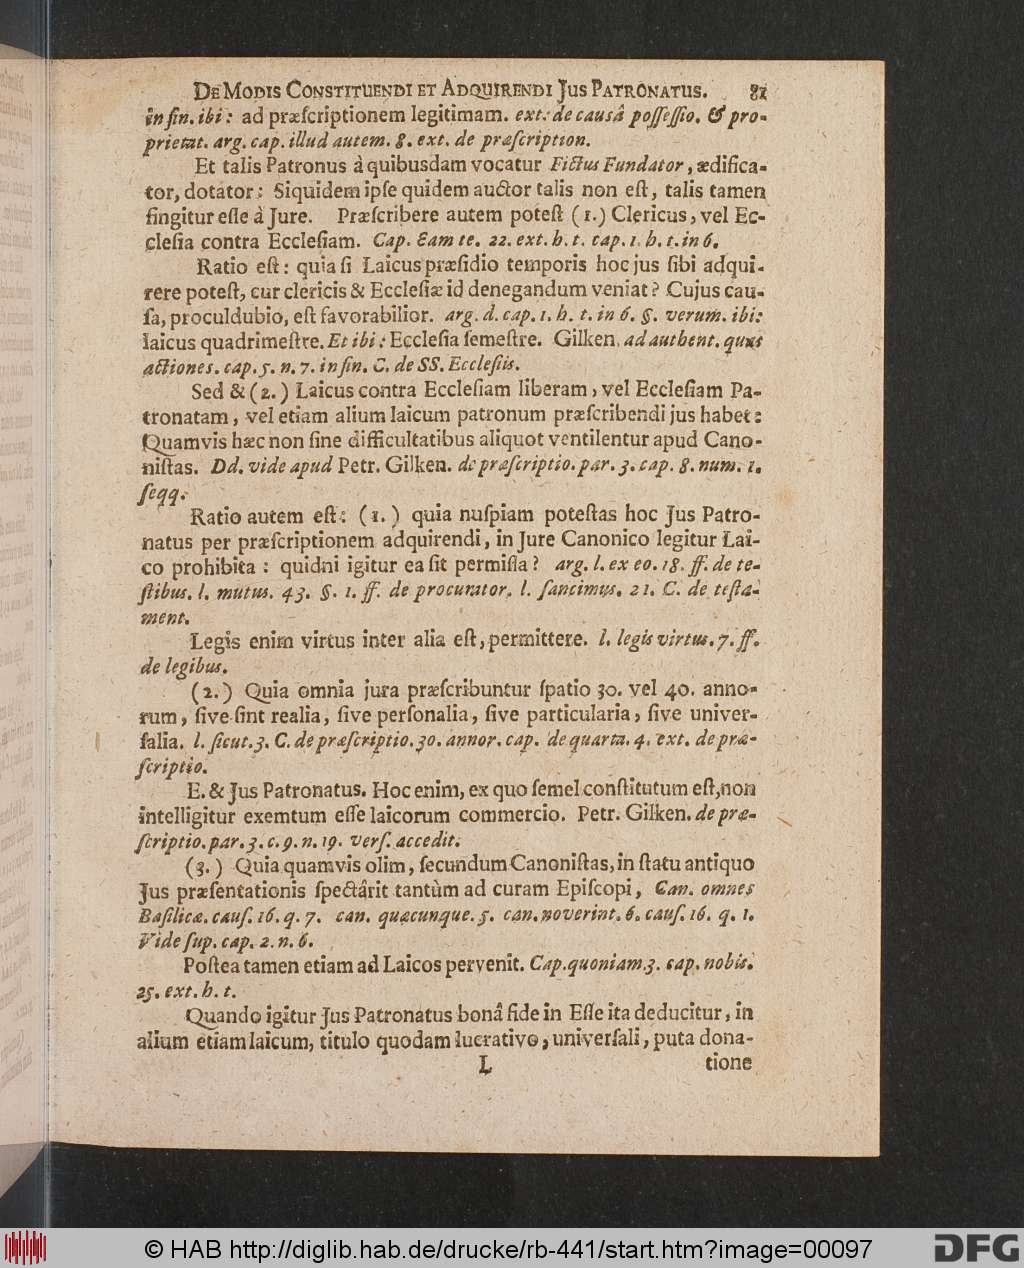 DE MODIS CONSTITUENDI ET ADQUIRENDI JUS PATRONATUS. 81
in fin. ibi: ad præſcriptionem legitimam. ext. de causâ poſſeſſio. & pro-
prietat. arg. cap. illud autem. 8. ext. de præſcription.
Et talis Patronus à quibusdam vocatur Fictus Fundator, ædifica-
tor, dotator: Siquidem ipſe quidem auctor talis non eſt, talis tamen
fingitur eſſe à Jure. Præſcribere autem poteſt (1.) Clericus, vel Ec-
cleſia contra Eccleſiam. Cap. Eam te. 22. ext. h. t. cap. 1. h. t. in 6.
Ratio eſt: quia ſi Laicus præſidio temporis hoc jus ſibi adqui-
rere poteſt, cur clericis & Eccleſiæ id denegandum veniat? Cujus cau-
ſa, proculdubio, eſt favorabilior. arg. d. cap. 1. h. t. in 6. §. verum. ibi:
laicus quadrimeſtre. Et ibi: Eccleſia ſemeſtre. Gilken. ad authent. quas
actiones. cap. 5. n. 7. in fin. C. de SS. Eccleſiis.
Sed & (2.) Laicus contra Eccleſiam liberam, vel Eccleſiam Pa-
tronatam, vel etiam alium laicum patronum præſcribendi jus habet:
Quamvis hæc non ſine difficultatibus aliquot ventilentur apud Cano-
niſtas. Dd. vide apud Petr. Gilken. de præſcriptio. par. 3. cap. 8. num. 1.
ſeqq.
Ratio autem eſt: (1.) quia nuſpiam poteſtas hoc Jus Patro-
natus per præſcriptionem adquirendi, in Jure Canonico legitur Lai-
co prohibita: quidni igitur ea ſit permiſſa? arg. l. ex eo. 18. ff. de te-
ſtibus. l. mutus. 43. §. 1. ff. de procurator. l. ſancimus. 21. C. de teſta-
ment.
Legis enim virtus inter alia eſt, permittere. l. legis virtus. 7. ff.
de legibus.
(2.) Quia omnia jura præſcribuntur ſpatio 30. vel 40. anno-
rum, ſive ſint realia, ſive perſonalia, ſive particularia, ſive univer-
ſalia. l. ſicut. 3. C. de præſcriptio. 30. annor. cap. de quarta. 4. ext. de præ-
ſcriptio.
E. & Jus Patronatus. Hoc enim, ex quo ſemel conſtitutum eſt, non
intelligitur exemtum eſſe laicorum commercio. Petr. Gilken. de præ-
ſcriptio. par. 3. c. 9. n. 19. verſ. accedit.
(3.) Quia quamvis olim, ſecundum Canoniſtas, in ſtatu antiquo
Jus præſentationis ſpectârit tantùm ad curam Epiſcopi, Can. omnes
Baſilicæ. cauſ. 16. q. 7. can. quæcunque. 5. can. noverint. 6. cauſ. 16. q. 1.
Vide ſup. cap. 2. n. 6.
Poſtea tamen etiam ad Laicos pervenit. Cap. quoniam 3. cap. nobis.
25. ext. h. t.
Quando igitur Jus Patronatus bonâ fide in Eſſe ita deducitur, in
alium etiam laicum, titulo quodam lucrativo, univerſali, puta dona-
L tione
© HAB http://diglib.hab.de/drucke/rb-441/start.htm?image=00097
DFG